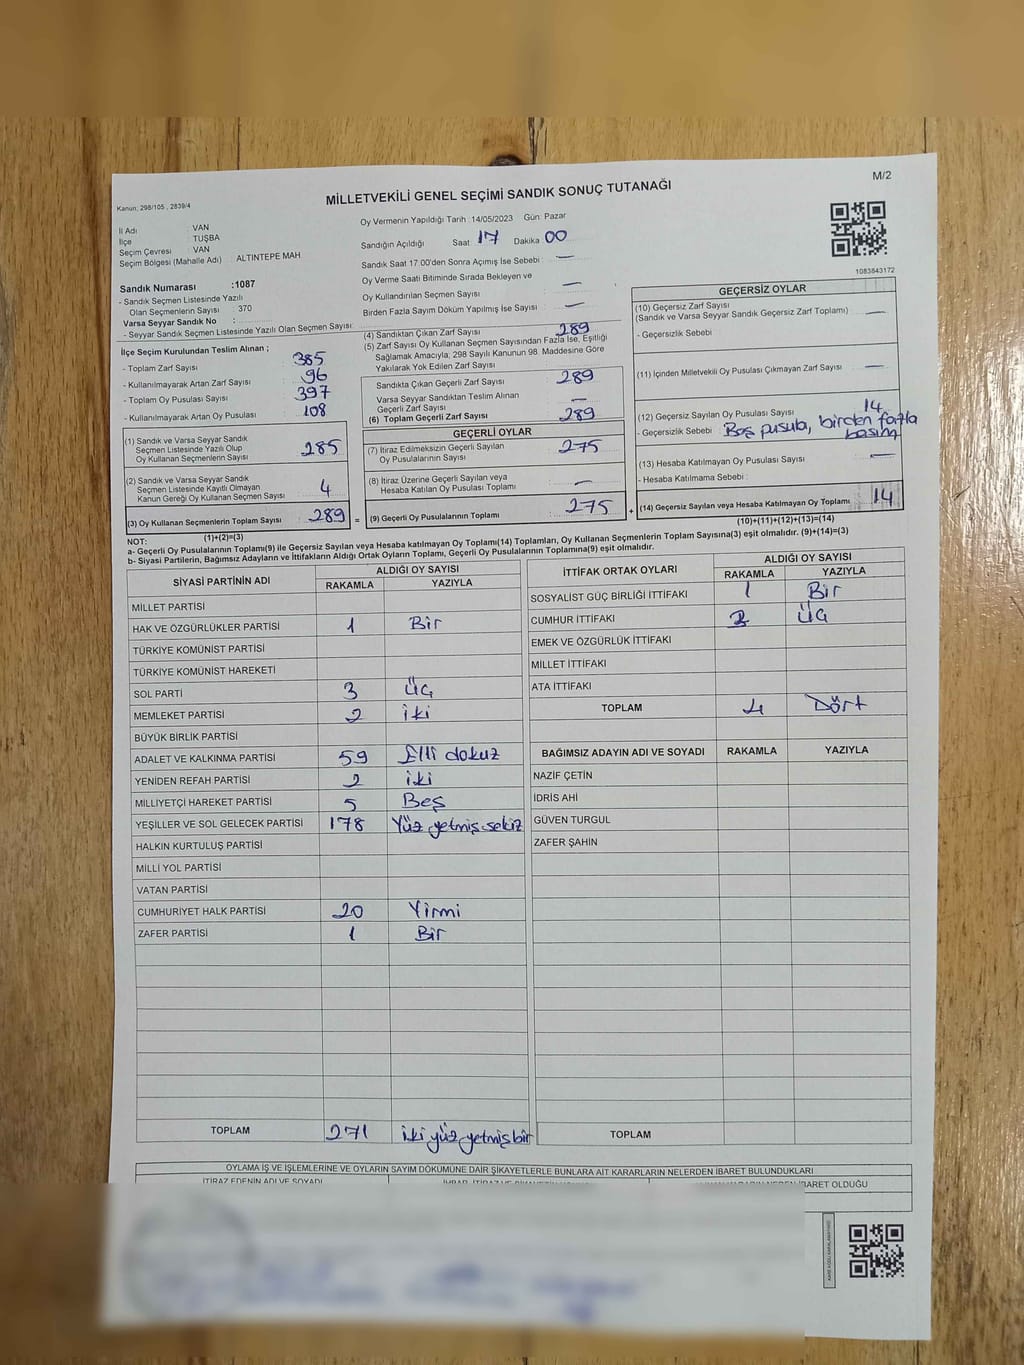 M/2
MİLLETVEKİLİ GENEL SEÇİMİ SANDIK SONUÇ TUTANAĞI
Kanun; 298/105 , 2839/4
İl Adı : VAN
İlçe : TUŞBA
Seçim Çevresi : VAN
Seçim Bölgesi (Mahalle Adı) : ALTINTEPE MAH
Sandık Numarası :1087
- Sandık Seçmen Listesinde Yazılı
Olan Seçmenlerin Sayısı : 370
Varsa Seyyar Sandık No :
- Seyyar Sandık Seçmen Listesinde Yazılı Olan Seçmen Sayısı:
Oy Vermenin Yapıldığı Tarih : 14/05/2023 Gün: Pazar
Sandığın Açıldığı Saat 17 Dakika 00
Sandık Saat 17:00'den Sonra Açımış İse Sebebi : —
Oy Verme Saati Bitiminde Sırada Bekleyen ve
Oy Kullandırılan Seçmen Sayısı —
Birden Fazla Sayım Döküm Yapılmış İse Sayısı : —
1083843172
İlçe Seçim Kurulundan Teslim Alınan ;
- Toplam Zarf Sayısı : 385
- Kullanılmayarak Artan Zarf Sayısı : 96
- Toplam Oy Pusulası Sayısı : 397
- Kullanılmayarak Artan Oy Pusulası : 108
(1) Sandık ve Varsa Seyyar Sandık
Seçmen Listesinde Yazılı Olup
Oy Kullanan Seçmenlerin Sayısı : 285
(2) Sandık ve Varsa Seyyar Sandık
Seçmen Listesinde Kayıtlı Olmayan
Kanun Gereği Oy Kullanan Seçmen Sayısı : 4
(3) Oy Kullanan Seçmenlerin Toplam Sayısı : 289 =
(1)+(2)=(3)
(4) Sandıktan Çıkan Zarf Sayısı : 289
(5) Zarf Sayısı Oy Kullanan Seçmen Sayısından Fazla İse, Eşitliği
Sağlamak Amacıyla; 298 Sayılı Kanunun 98. Maddesine Göre
Yakılarak Yok Edilen Zarf Sayısı :
Sandıkta Çıkan Geçerli Zarf Sayısı : 289
Varsa Seyyar Sandıktan Teslim Alınan
Geçerli Zarf Sayısı : —
(6) Toplam Geçerli Zarf Sayısı : 289
GEÇERLİ OYLAR
(7) İtiraz Edilmeksizin Geçerli Sayılan
Oy Pusulalarının Sayısı : 275
(8) İtiraz Üzerine Geçerli Sayılan veya
Hesaba Katılan Oy Pusulası Toplamı : —
(9) Geçerli Oy Pusulalarının Toplamı : 275 +
GEÇERSİZ OYLAR
(10) Geçersiz Zarf Sayısı
(Sandık ve Varsa Seyyar Sandık Geçersiz Zarf Toplamı) : —
- Geçersizlik Sebebi :
(11) İçinden Milletvekili Oy Pusulası Çıkmayan Zarf Sayısı : —
(12) Geçersiz Sayılan Oy Pusulası Sayısı : 14
- Geçersizlik Sebebi : Boş pusula, birden fazla
basım
(13) Hesaba Katılmayan Oy Pusulası Sayısı : —
- Hesaba Katılmama Sebebi :
(14) Geçersiz Sayılan veya Hesaba Katılmayan Oy Toplamı : 14
(10)+(11)+(12)+(13)=(14)
NOT:
a- Geçerli Oy Pusulalarının Toplamı(9) ile Geçersiz Sayılan veya Hesaba Katılmayan Oy Toplamı(14) Toplamları, Oy Kullanan Seçmenlerin Toplam Sayısına(3) eşit olmalıdır. (9)+(14)=(3)
b- Siyasi Partilerin, Bağımsız Adayların ve İttifakların Aldığı Ortak Oyların Toplamı, Geçerli Oy Pusulalarının Toplamına(9) eşit olmalıdır.
SİYASİ PARTİNİN ADI ALDIĞI OY SAYISI
RAKAMLA YAZIYLA
MİLLET PARTİSİ
HAK VE ÖZGÜRLÜKLER PARTİSİ 1 Bir
TÜRKİYE KOMÜNİST PARTİSİ
TÜRKİYE KOMÜNİST HAREKETİ
SOL PARTİ 3 Üç
MEMLEKET PARTİSİ 2 iki
BÜYÜK BİRLİK PARTİSİ
ADALET VE KALKINMA PARTİSİ 59 Elli dokuz
YENİDEN REFAH PARTİSİ 2 iki
MİLLİYETÇİ HAREKET PARTİSİ 5 Beş
YEŞİLLER VE SOL GELECEK PARTİSİ 178 Yüz yetmiş sekiz
HALKIN KURTULUŞ PARTİSİ
MİLLİ YOL PARTİSİ
VATAN PARTİSİ
CUMHURİYET HALK PARTİSİ 20 Yirmi
ZAFER PARTİSİ 1 Bir
TOPLAM 271 iki yüz yetmiş bir
İTTİFAK ORTAK OYLARI ALDIĞI OY SAYISI
RAKAMLA YAZIYLA
SOSYALİST GÜÇ BİRLİĞİ İTTİFAKI 1 Bir
CUMHUR İTTİFAKI 3 Üç
EMEK VE ÖZGÜRLÜK İTTİFAKI
MİLLET İTTİFAKI
ATA İTTİFAKI
TOPLAM 4 Dört
BAĞIMSIZ ADAYIN ADI VE SOYADI RAKAMLA YAZIYLA
NAZİF ÇETİN
İDRİS AHİ
GÜVEN TURGUL
ZAFER ŞAHİN
TOPLAM
OYLAMA İŞ VE İŞLEMLERİNE VE OYLARIN SAYIM DÖKÜMÜNE DAİR ŞİKAYETLERLE BUNLARA AİT KARARLARIN NELERDEN İBARET BULUNDUKLARI
İTİRAZ EDENİN ADI VE SOYADI
İBARET OLDUĞU